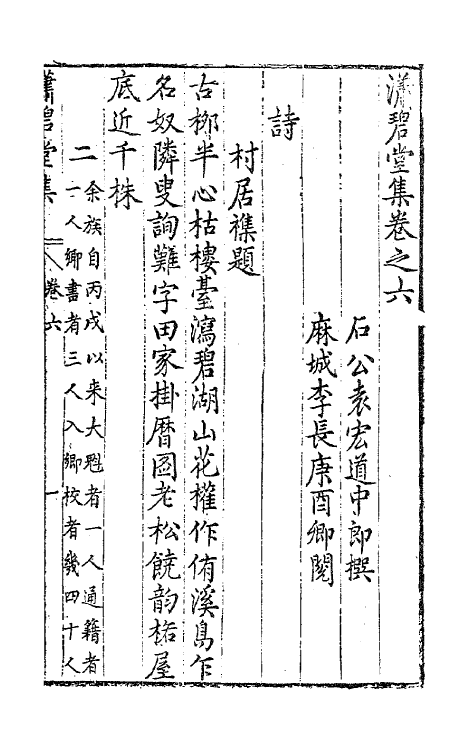 瀟碧堂集卷之六
石公袁宏道中郎撰
麻城李長庚酉卿閱
詩
村居襍題
古栁半心枯樓臺瀉碧湖山花權作侑溪鳥乍
名奴隣叟詢難字田家掛曆圖老松饒韵格屋
底近千株
二
余族自丙戌以来大魁者一人通籍者
一人鄉書者三人入鄉校者幾四十人
瀟碧堂集
卷六
一